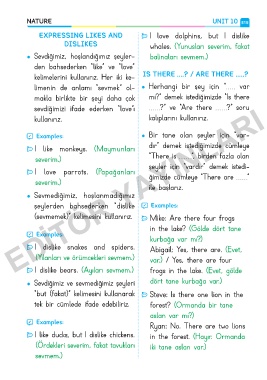 NATURE
UNIT 10
EXPRESSING LIKES AND
DISLIKES
Sevdiğimizi, hoşlandığımız şeyler-
den bahsederken "like" ve "love"
kelimelerini kullanırız. Her iki ke-
limenin de anlamı "sevmek" ol-
makla birlikte bir şeyi daha çok
sevdiğimizi ifade ederken "love"ı
kullanırız.
Examples:
I like monkeys. (Maymunları
severim.)
I love parrots. (Papağanları
severim.)
Sevmediğimiz, hoşlanmadığımız
şeylerden bahsederken "dislike
(sevmemek)" kelimesini kullanırız.
Examples:
I dislike snakes and spiders.
(Yılanları ve örümcekleri sevmem.)
I dislike bears. (Ayıları sevmem.)
Sevdiğimiz ve sevmediğimiz şeyleri
"but (fakat)" kelimesini kullanarak
tek bir cümlede ifade edebiliriz.
Examples:
I like ducks, but I dislike chickens.
(Ördekleri severim, fakat tavukları
sevmem.)
I love dolphins, but I dislike
whales. (Yunusları severim, fakat
balinaları sevmem.)
IS THERE ....? / ARE THERE ....?
Herhangi bir şey için "...... var
mı?" demek istediğimizde "Is there
......?" ve "Are there ......?" soru
kalıplarını kullanırız.
Bir tane olan şeyler için "var-
dır" demek istediğimizde cümleye
"There is ......", birden fazla olan
şeyler için "vardır" demek istedi-
ğimizde cümleye "There are ......"
ile başlarız.
Examples:
Mike: Are there four frogs
in the lake? (Gölde dört tane
kurbağa var mı?)
Abigail: Yes, there are. (Evet,
var.) / Yes, there are four
frogs in the lake. (Evet, gölde
dört tane kurbağa var.)
Steve: Is there one lion in the
forest? (Ormanda bir tane
aslan var mı?)
Ryan: No. There are two lions
in the forest. (Hayır. Ormanda
iki tane aslan var.)